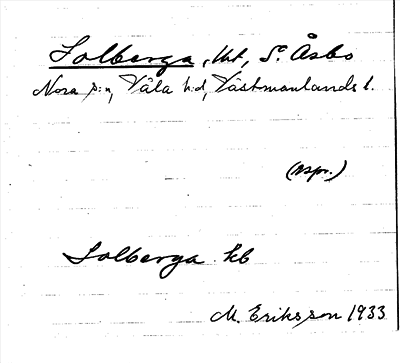 Solberga, lht, S. Åsbo
Nora s:n, Våla h:d, Västmanlands l.
(uspr.)
Solberga kb
M. Eriksson 1933